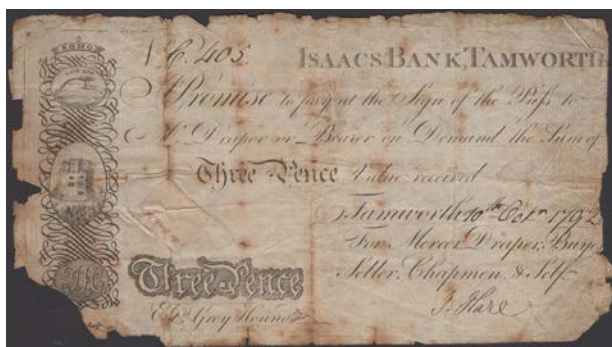 SOHO
N C. 405 ISAACS BANK, TAMWORTH
I Promise to pay at the Sign of the Puss to
Mr. Draper or Bearer on Demand the Sum of
Three Pence Value received
Tamworth 10th Octr 1792
For Mercer, Draper, Buyer
Seller, Chapmen, & Self
Three Pence
Entd Grey Hound
J. Hare